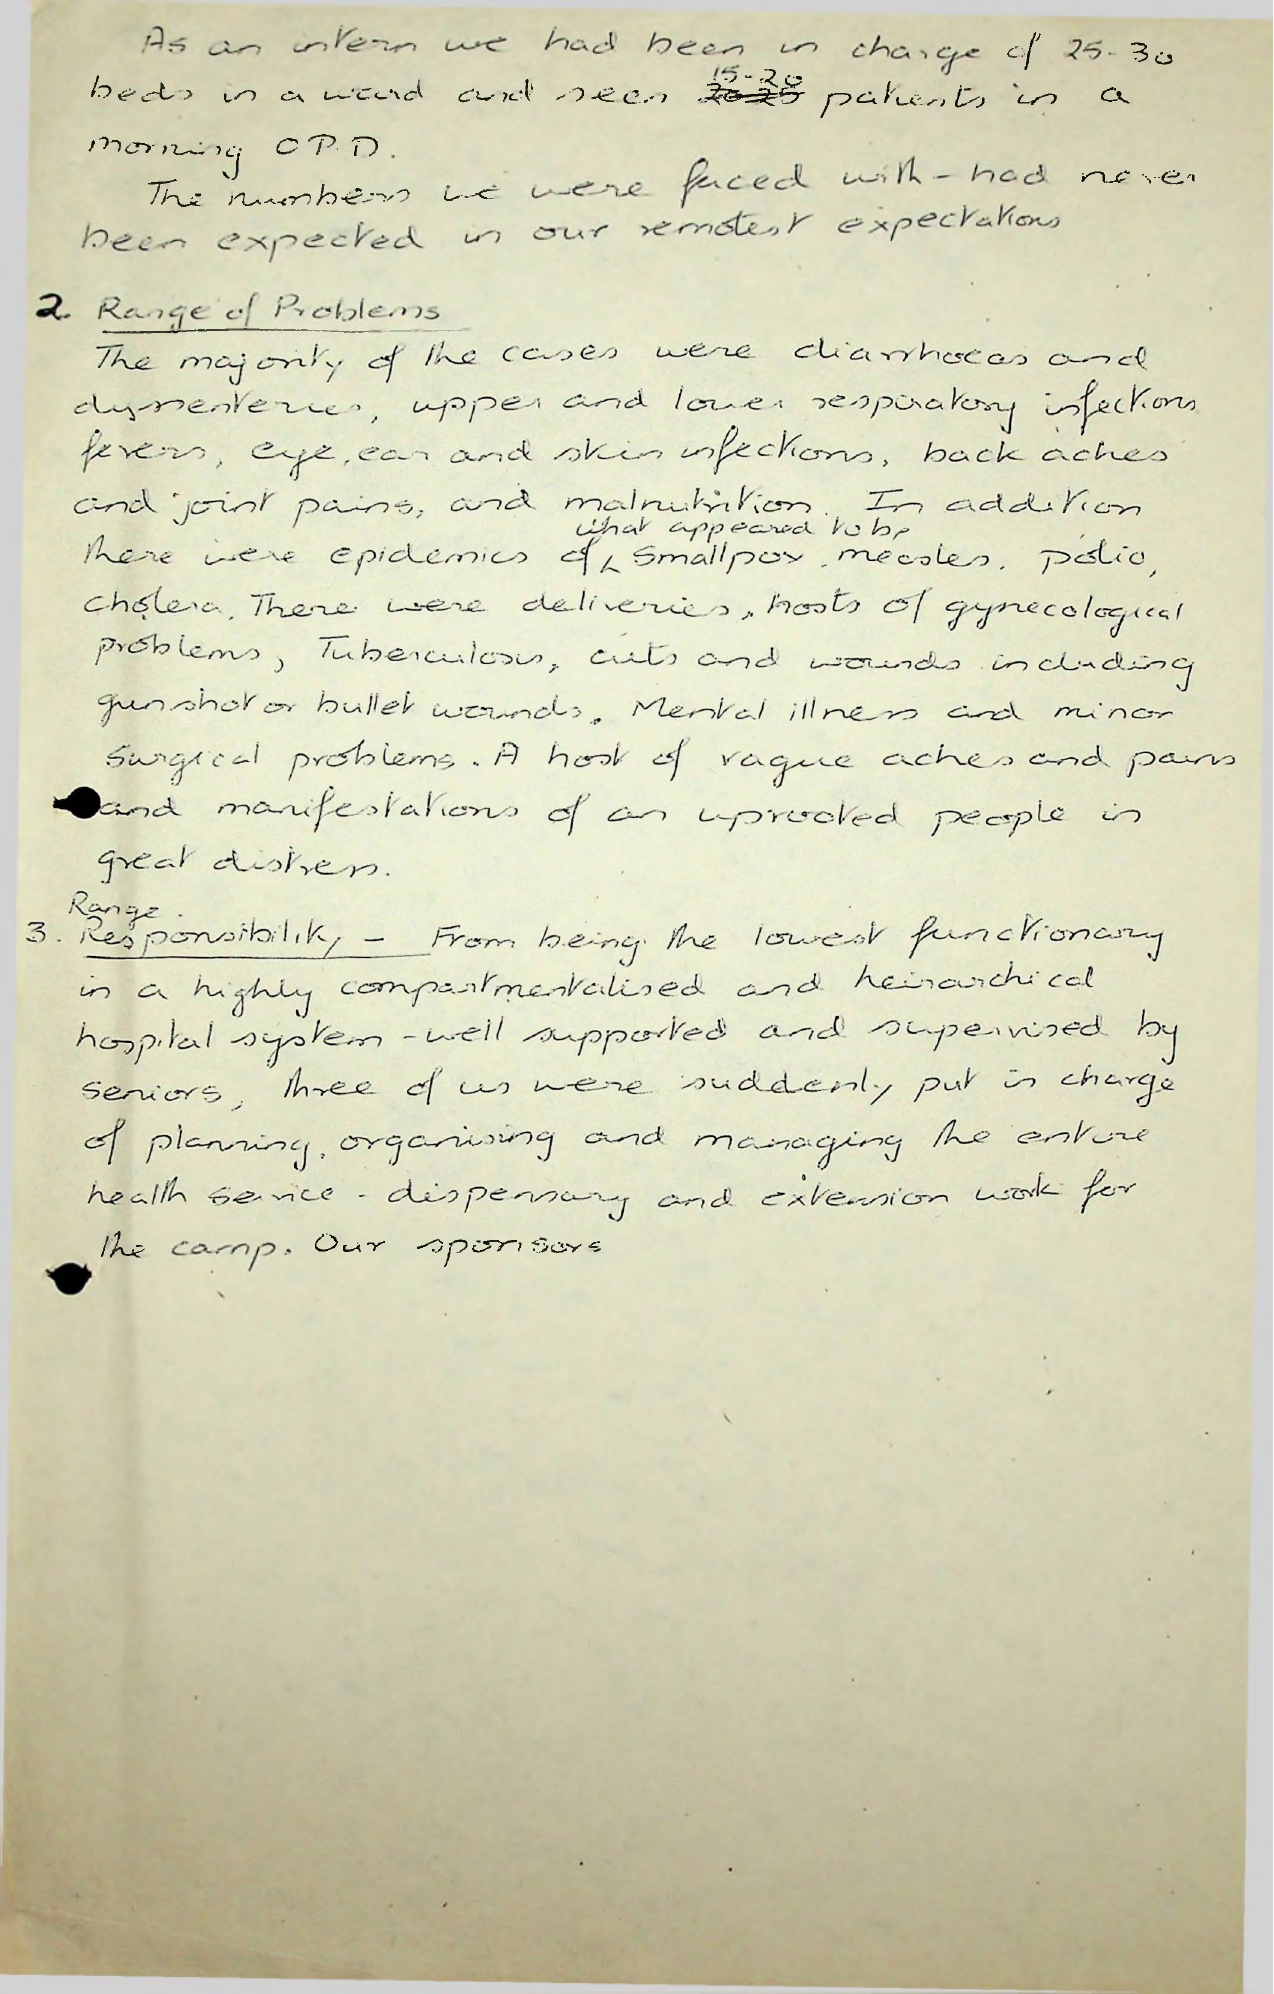 As an intern we had been in charge of 25-30
beds in a ward and seen 15-20 ~~20-25~~ patients in a
morning O.P.D.
The numbers we were faced with - had never
been expected in our remotest expectations
2. Range of Problems
The majority of the cases were diarrhoeas and
dysenteries, upper and lower respiratory infections
fevers, eye, ear and skin infections, back aches
and joint pains, and malnutrition. In addition
what appeared to be
there were epidemics of Smallpox, measles, polio,
cholera. There were deliveries, hosts of gynecological
problems, Tuberculosis, cuts and wounds including
gunshot or bullet wounds. Mental illness and minor
surgical problems. A host of vague aches and pains
and manifestations of an uprooted people in
great distress.
Range
3. Responsibility - From being the lowest functionary
in a highly compartmentalised and heirarchical
hospital system - well supported and supervised by
seniors, three of us were suddenly put in charge
of planning, organising and managing the entire
health service - dispensary and extension work for
the camp. Our sponsors